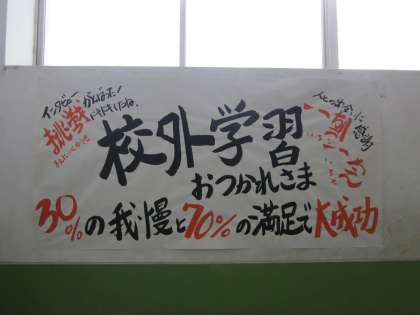 インタビュー がんばった!
挑戦 ドキドキしたね。
校外学習
おつかれさま
人との出会いに感謝
一期一会
30%の我慢と70%の満足で大成功